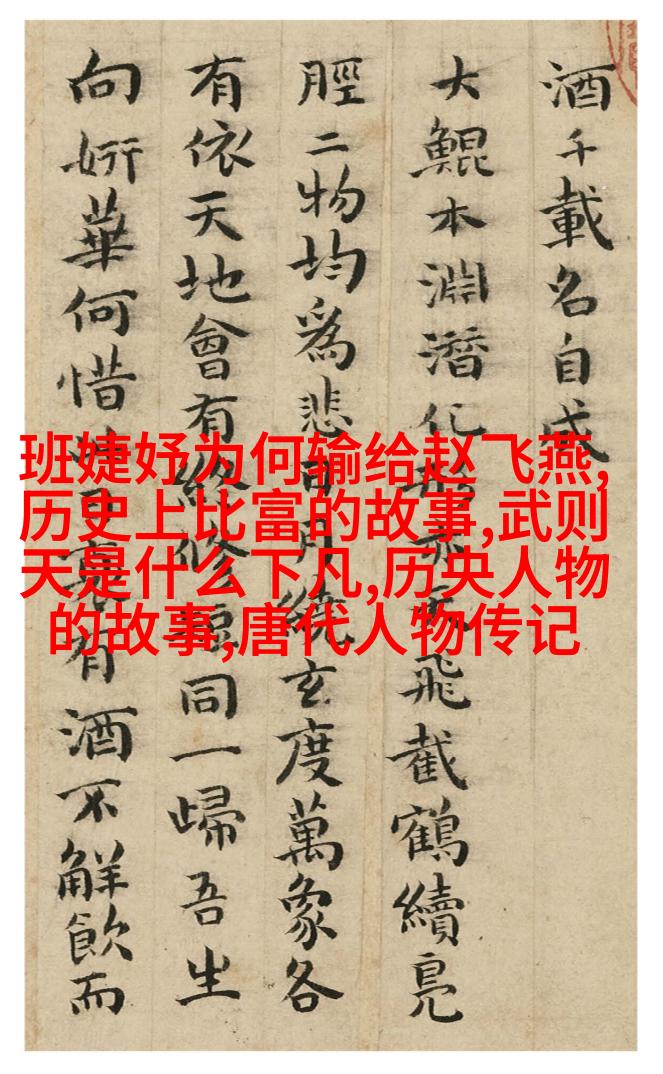 酒千載名自成
大鯤本淵潛化飛截鶴續鳧
脛二物均為悲日月統玄度萬象各
有依天地會有終修短同一歸吾生
向妍華何惜裏有酒不解飲而
班婕妤为何输给赵飞燕,
历史上比富的故事,武则
天是什么下凡,历央人物
的故事,唐代人物传记